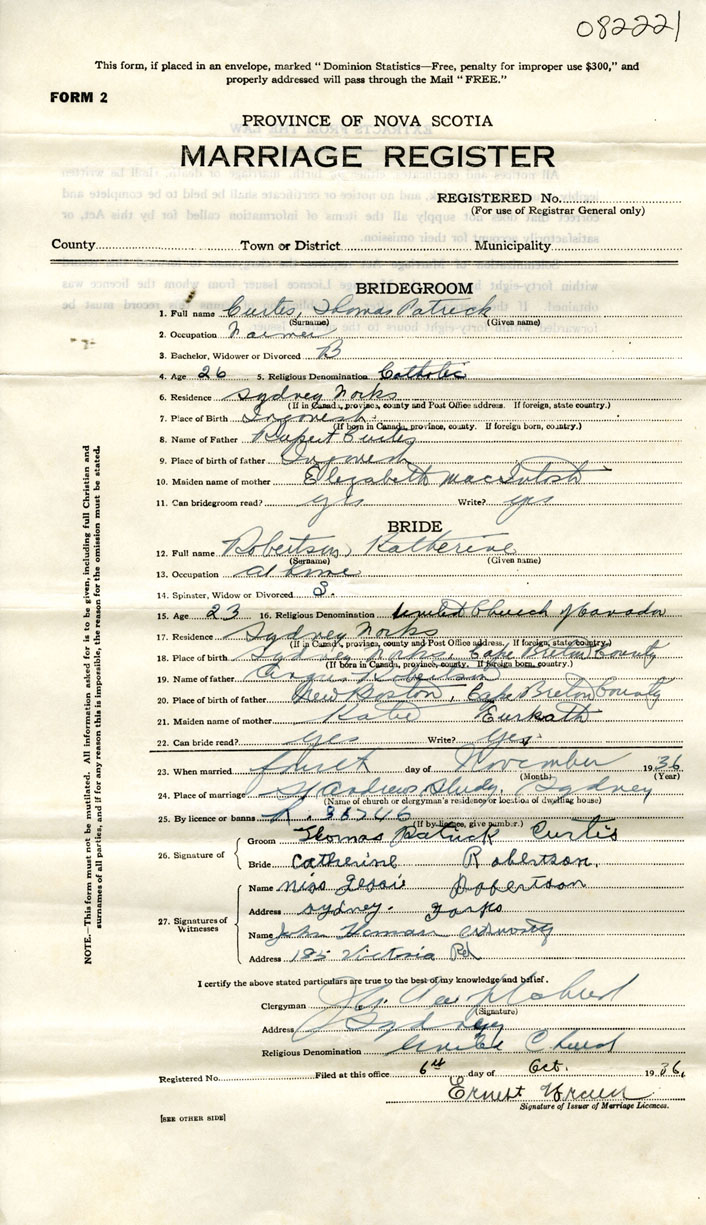 082221
This form, if placed in an envelope, marked "Dominion Statistics—Free, penalty for improper use $300," and
properly addressed will pass through the Mail "FREE."
FORM 2
PROVINCE OF NOVA SCOTIA
MARRIAGE REGISTER
REGISTERED No.
(For use of Registrar General only)
County Town or District Municipality
BRIDEGROOM
1. Full name Curtis, Thomas Patrick
(Surname) (Given name)
2. Occupation Farmer
3. Bachelor, Widower or Divorced B
4. Age 26 5. Religious Denomination Catholic
6. Residence Sydney Forks
(If in Canada, province, county and Post Office address. If foreign, state country.)
7. Place of Birth Ingonish
(If born in Canada, province, county. If foreign born, country.)
8. Name of Father Rupert Curtis
9. Place of birth of father Ingonish
10. Maiden name of mother Elizabeth MacIntosh
11. Can bridegroom read? yes Write? yes
BRIDE
12. Full name Robertson, Katherine
(Surname) (Given name)
13. Occupation at home
14. Spinster, Widow or Divorced S.
15. Age 23 16. Religious Denomination United Church of Canada
17. Residence Sydney Forks
(If in Canada, province, county and Post Office address. If foreign, state country.)
18. Place of birth Sydney Forks, Cape Breton County
(If born in Canada, province, county. If foreign born, country.)
19. Name of father Angus Robertson
20. Place of birth of father New Boston, Cape Breton County
21. Maiden name of mother Katie
22. Can bride read? yes Write? yes
23. When married fourth day of November 1936
(Month) (Year)
24. Place of marriage St Andrews Study, Sydney
(Name of church or clergyman's residence or location of dwelling house)
25. By licence or banns 36746
(If by licence, give number.)
26. Signature of
Groom Thomas Patrick Curtis
Bride Catherine Robertson.
27. Signatures of Witnesses
Name Miss Jessie Robertson
Address Sydney. Forks
Name John
Address 185 Victoria Rd
I certify the above stated particulars are true to the best of my knowledge and belief.
Clergyman
(Signature)
Address Sydney
Religious Denomination United Church
Registered No. Filed at this office 6th day of Oct. 1936,
Ernest
Signature of Issuer of Marriage Licences.
[SEE OTHER SIDE]
NOTE.—This form must not be mutilated. All information asked for is to be given, including full Christian and
surnames of all parties, and if for any reason this is impossible, the reason for the omission must be stated.